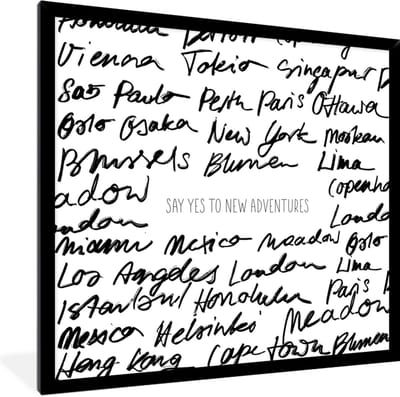 Honolulu Detroit Copenh
Vienna Tokio Singapur D
Sao Paulo Perth Paris Ottawa
Oslo Osaka New York Moskau
Brussels Blumen Lima
adow Copenha
SAY YES TO NEW ADVENTURES
ndon Londo
Miami Mexico Meadow Oslo
Los Angeles London Lima
Istanbul Honolulu Paris D
Meadow
Mexico Helsinki
Hong Kong Cape Town Blumen